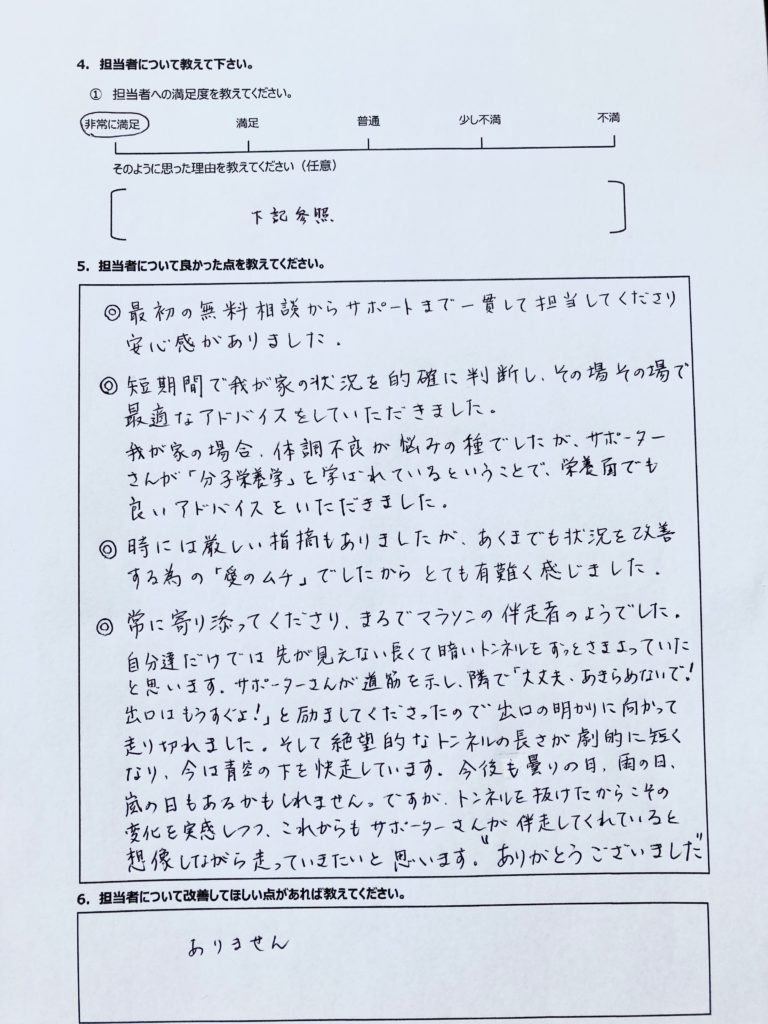 4. 担当者について教えて下さい。
① 担当者への満足度を教えてください。
非常に満足 満足 普通 少し不満 不満
そのように思った理由を教えてください（任意）
下記参照
5. 担当者について良かった点を教えてください。
◎ 最初の無料相談からサポートまで一貫して担当してくださり
安心感がありました.
◎ 短期間で我が家の状況を的確に判断し、その場その場で
最適なアドバイスをしていただきました。
我が家の場合、体調不良が悩みの種でしたが、サポーター
さんが「分子栄養学」を学ばれているということで、栄養面でも
良いアドバイスをいただきました.
◎ 時には厳しい指摘もありましたが、あくまでも状況を改善
する為の「愛のムチ」でしたからとても有難く感じました.
◎ 常に寄り添ってくださり、まるでマラソンの伴走者のようでした.
自分達だけでは先が見えない長くて暗いトンネルをずっとさまよっていた
と思います. サポーターさんが道筋を示し、隣で「大丈夫、あきらめないで!
出口はもうすぐよ!」と励ましてくださったので出口の明かりに向かって
走り切れました. そして絶望的なトンネルの長さが劇的に短く
なり、今は青空の下を快走しています. 今後も曇りの日、雨の日、
嵐の日もあるかもしれません。ですが、トンネルを抜けたからこその
変化を実感しつつ、これからもサポーターさんが伴走してくれていると
想像しながら走っていきたいと思います. "ありがとうございました"
6. 担当者について改善してほしい点があれば教えてください。
ありません